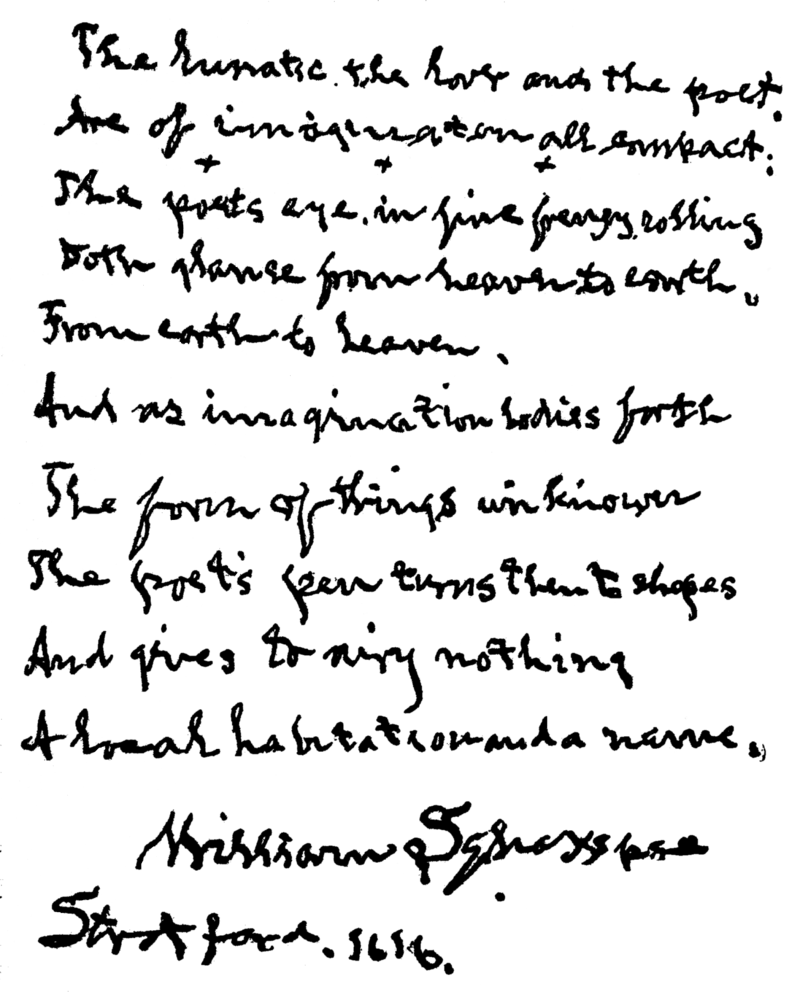 The lunatic. the lover and the poet.
Are of imagination all compact:
The poets eye. in fine frenzy rolling
Doth glanse from heaven to earth.
From earth to heaven.
And as imagination bodies forth
The form of things unknown
The poet's pen turns them to shapes
And gives to airy nothing
A local habitation and a name.
William
Stratford. 1616.